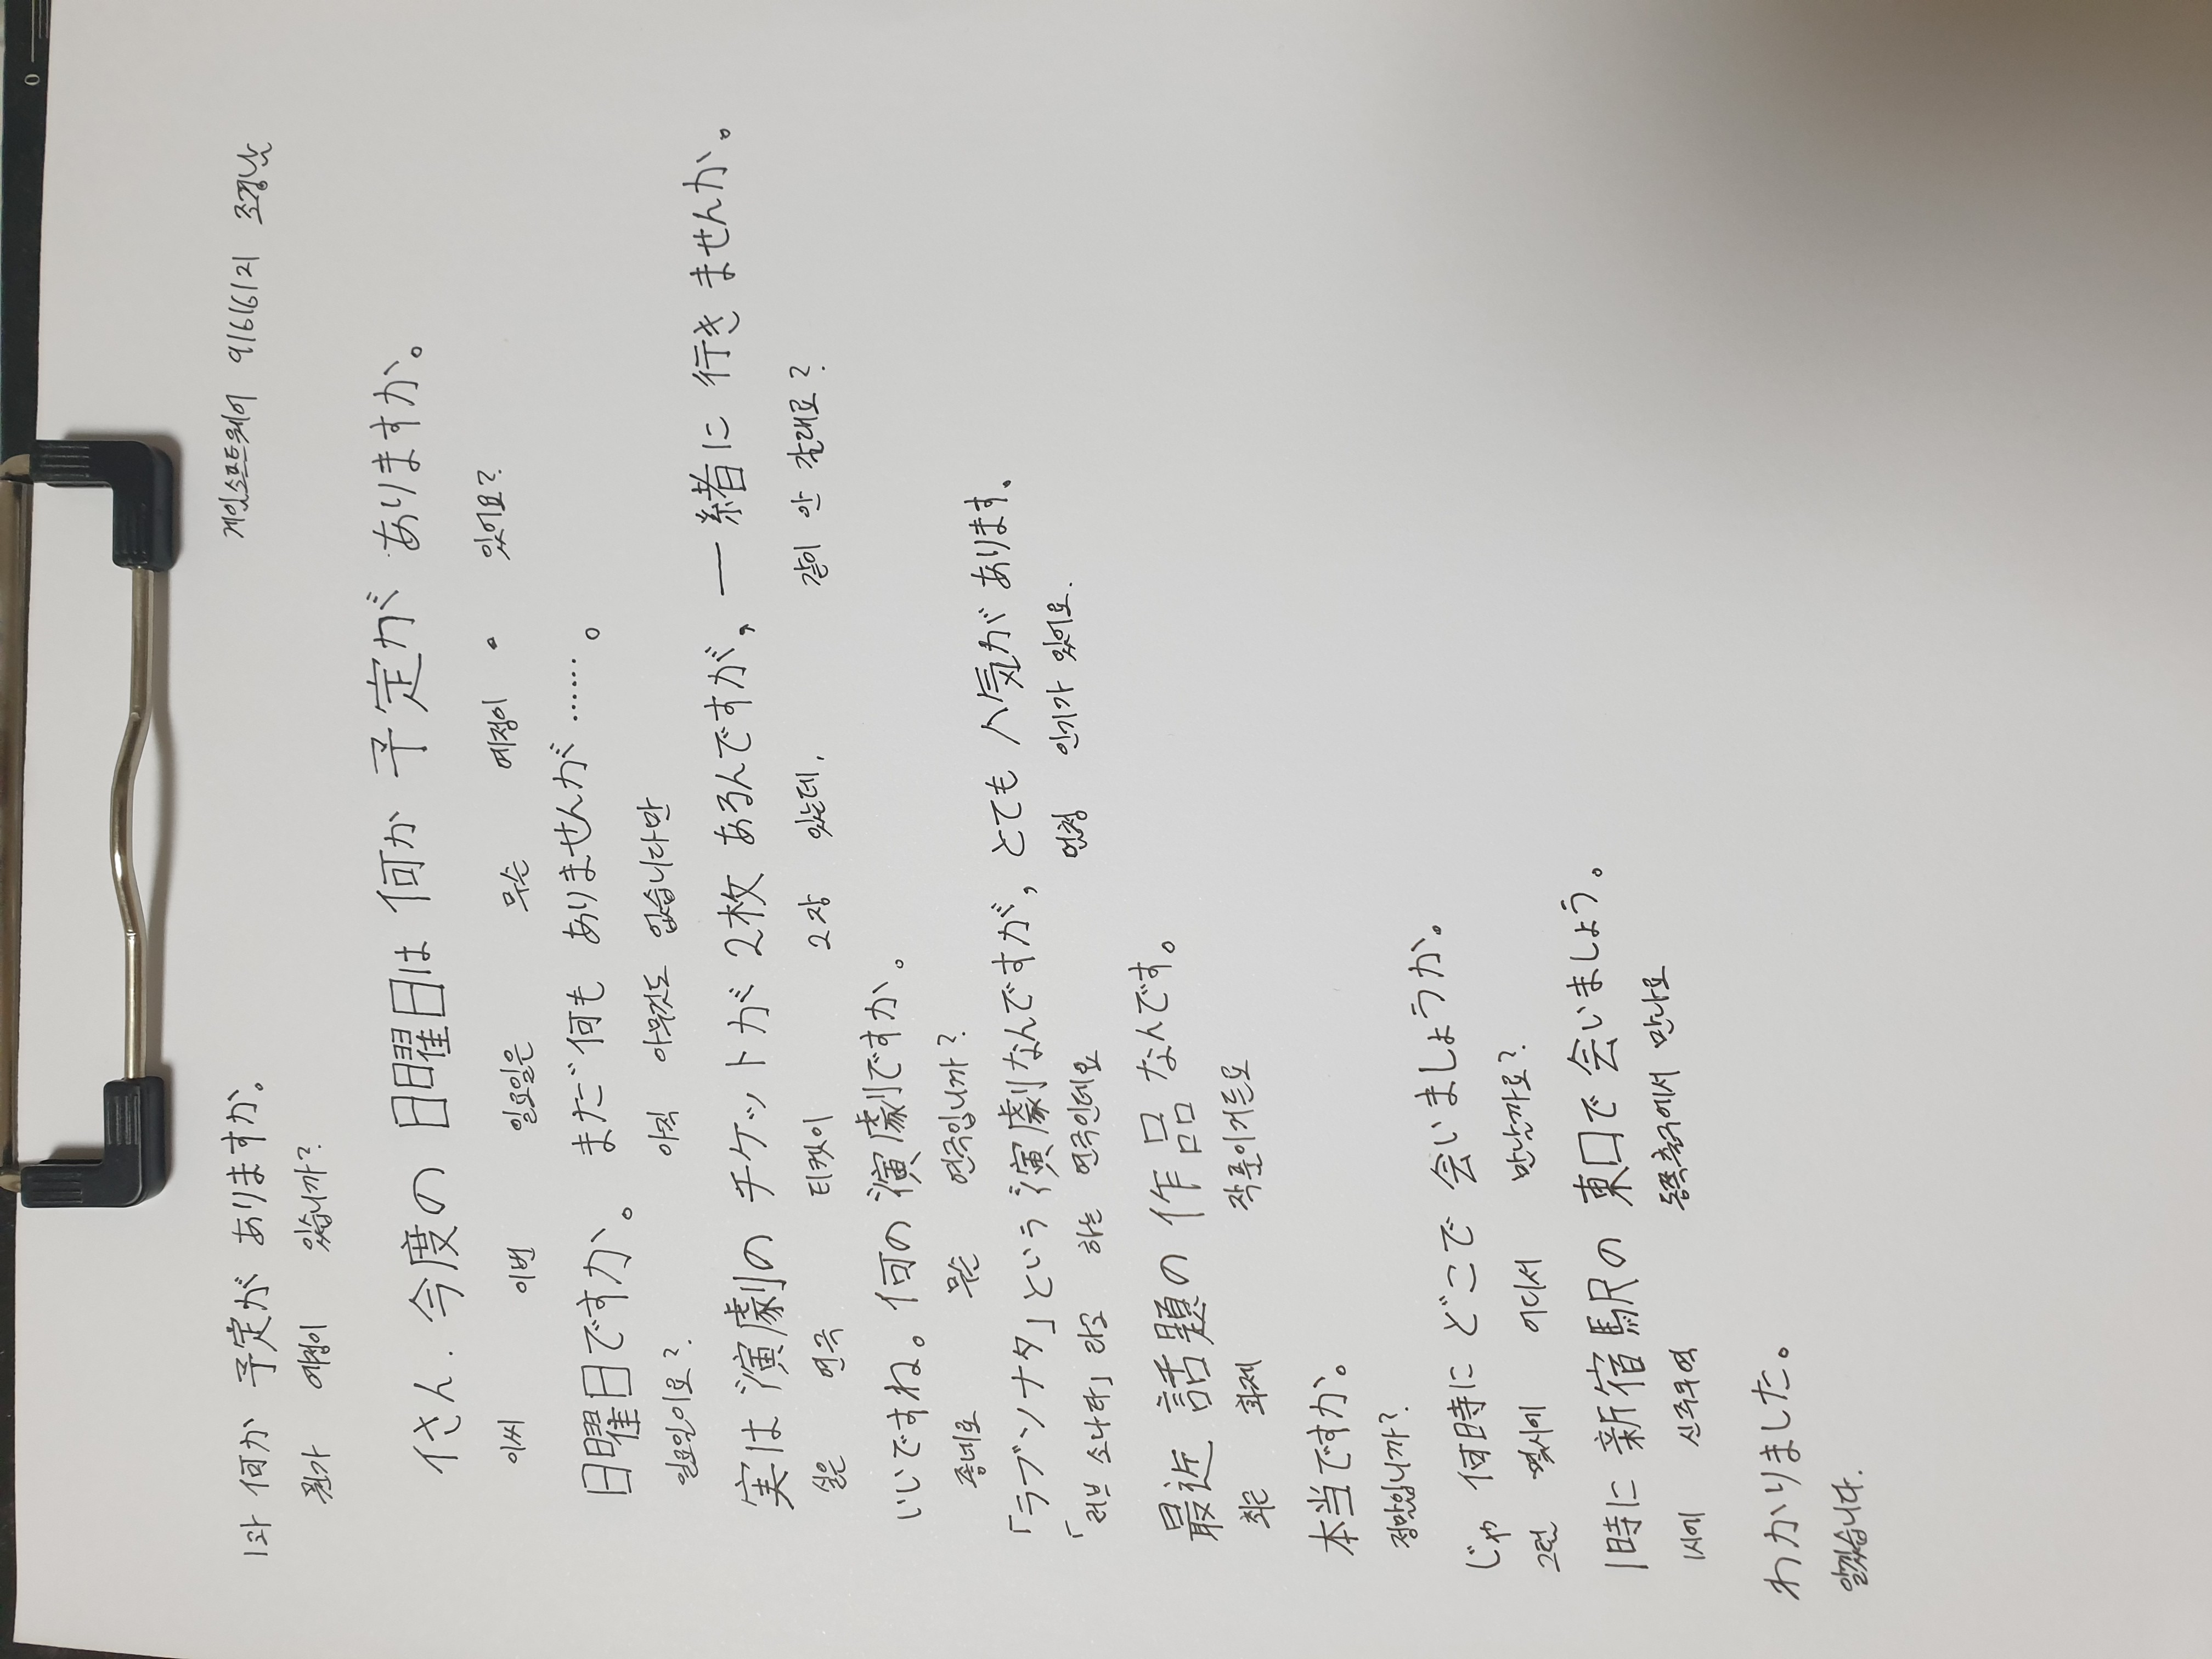 1과 何か 予定が ありますか。 게임소프트웨어 9166121
뭔가 예정이 있습니까?
イさん. 今度の 日曜日は 何か 予定が ありますか。
이씨 이번 일요일은 무슨 예정이 있어요?
日曜日ですか。 まだ 何も ありませんが……。
일요일이요? 아직 아무것도 없습니다만
実は 演劇の チケットが 2枚 あるんですが, 一緒に 行きませんか。
실은 연극 티켓이 2장 있는데, 같이 안 갈래요?
いいですね。何の 演劇ですか。
좋네요 무슨 연극입니까?
「ラブソナタ」という 演劇なんですが, とても 人気が あります。
「러브 소나타」라고 하는 연극인데요 엄청 인기가 있어요.
最近 話題の 作品 なんです。
최근 화제 작품이거든요
本当ですか。
정말입니까?
じゃ 何時に どこで 会いましょうか。
그럼 몇시에 어디서 만날까요?
1時に 新宿駅の 東口で 会いましょう。
1시에 신주쿠역 동쪽출구에서 만나요
わかりました。
알겠습니다.